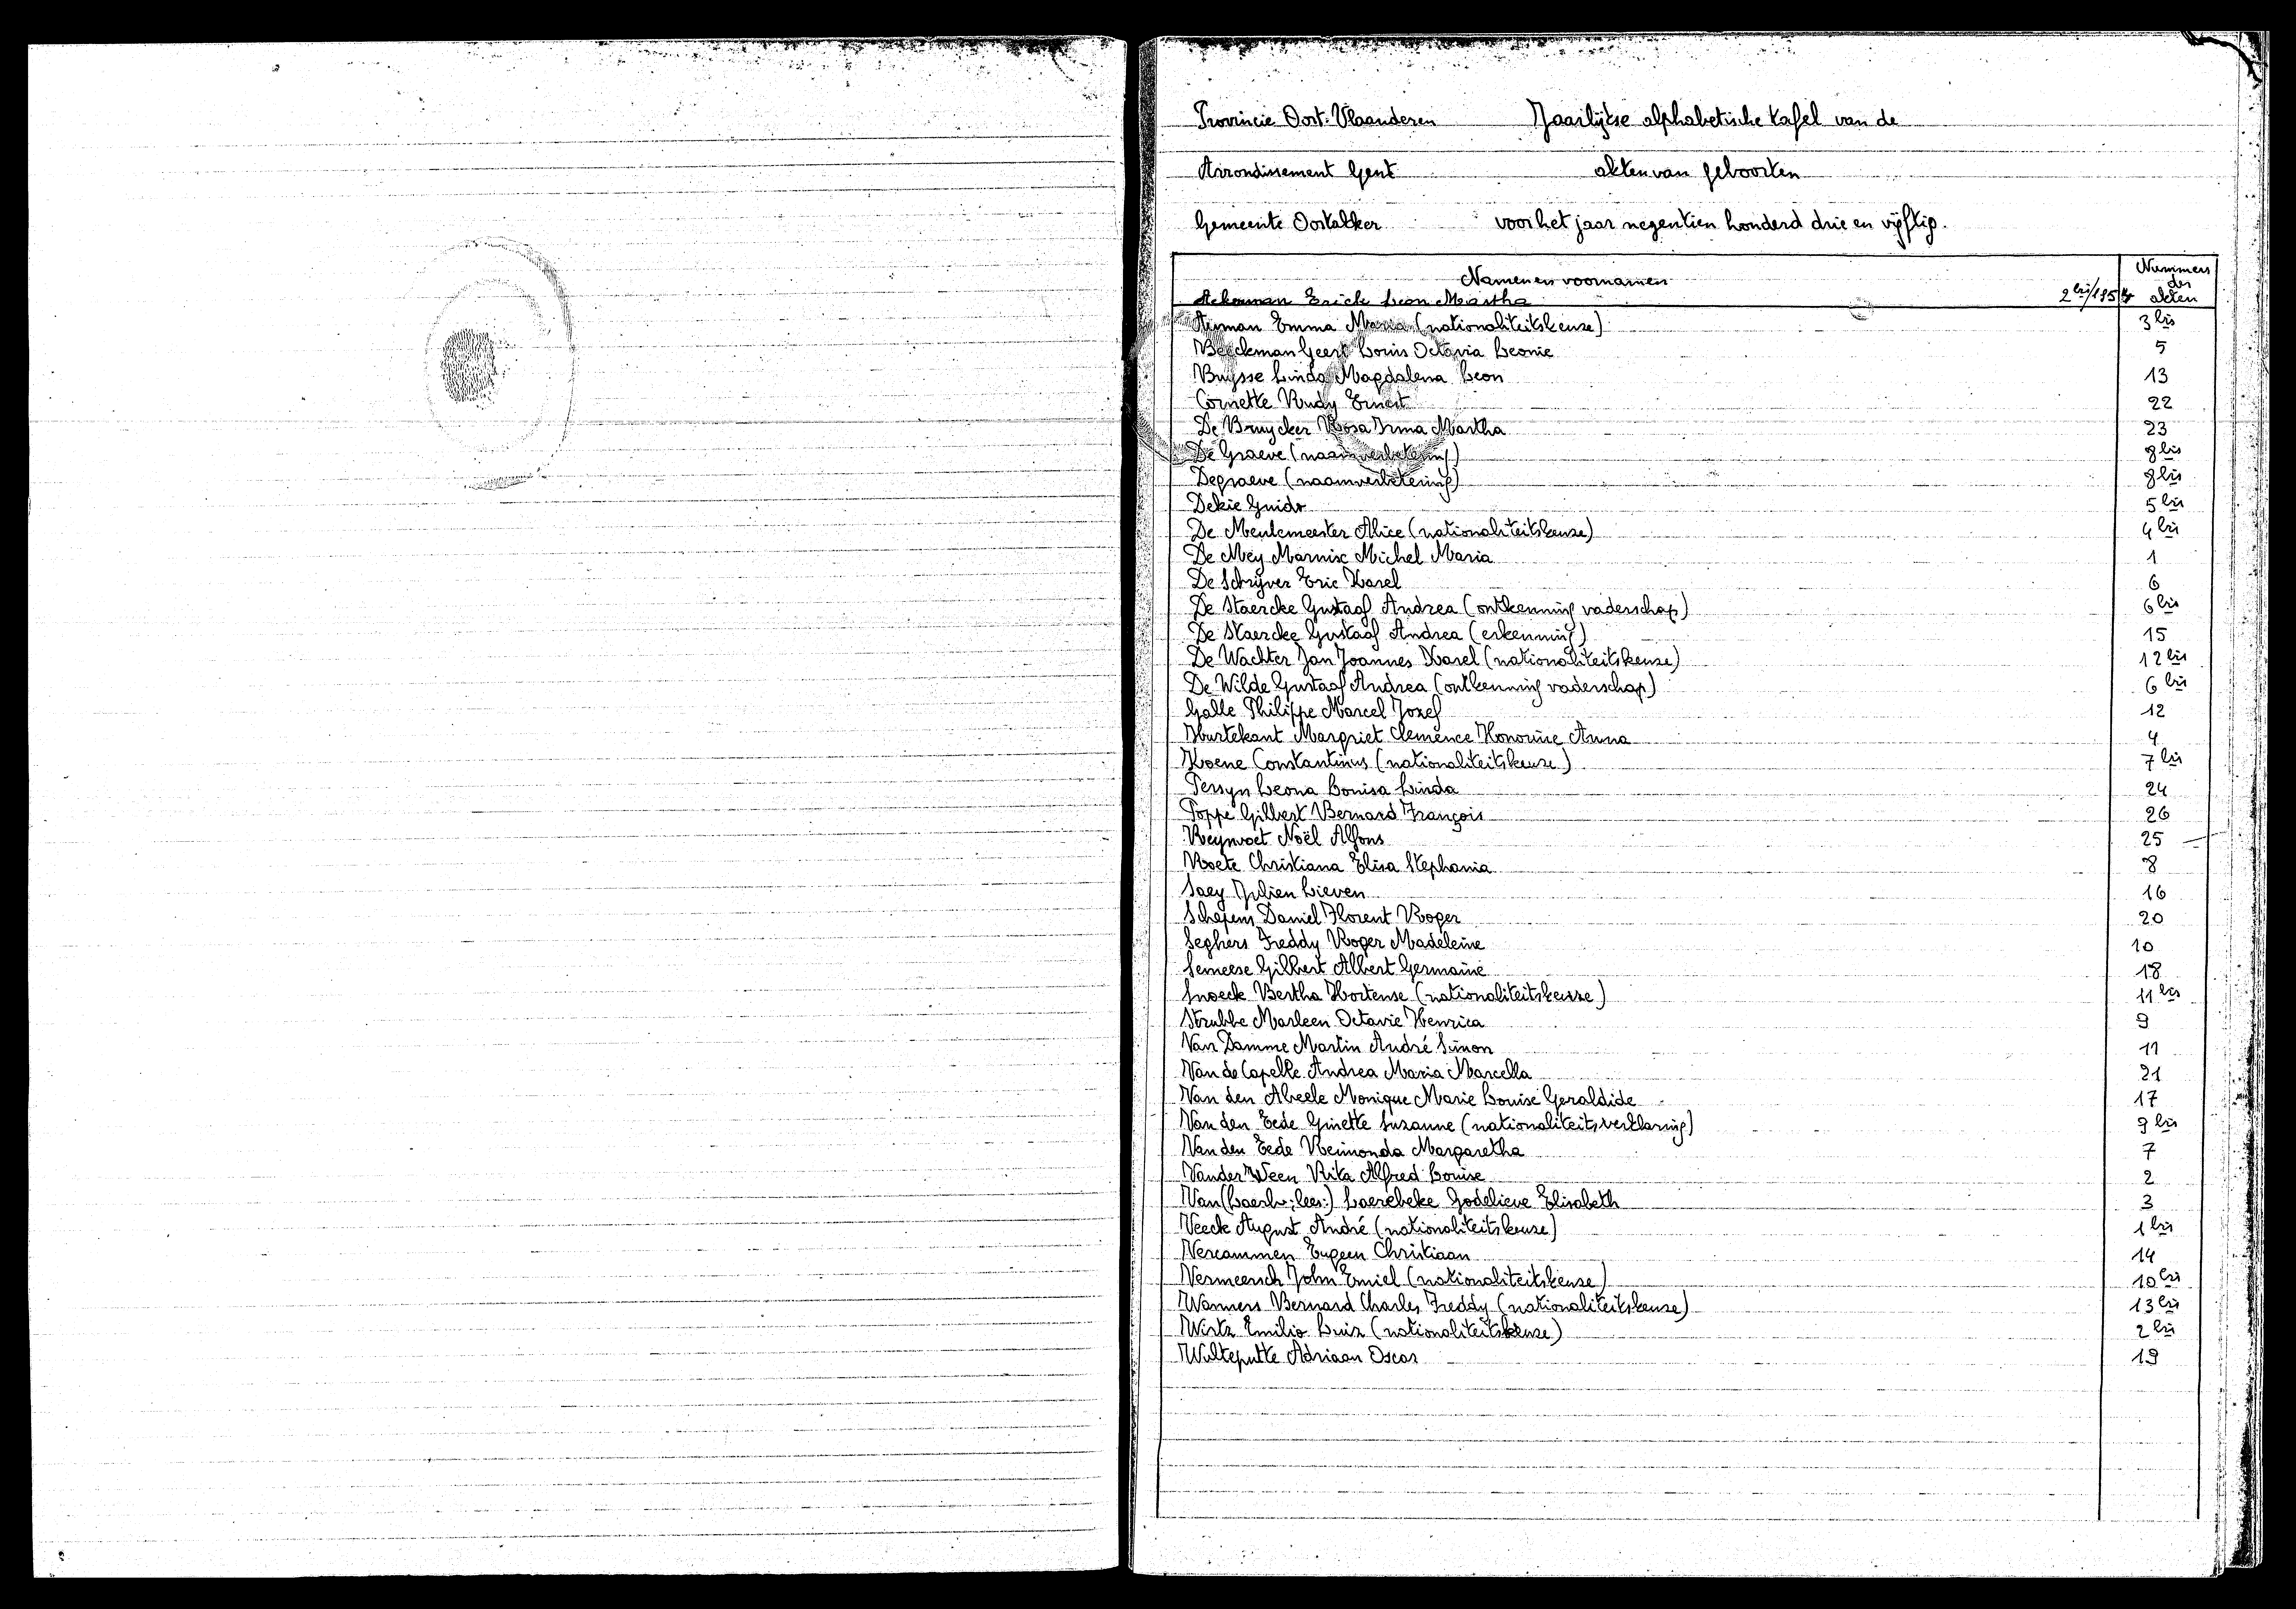 Provincie Oost-Vlaanderen Jaarlijkse alphabetische tafel van de
Arrondissement Gent akten van geboorten
Gemeente Oostakker voor het jaar negentien honderd drie en vijftig.
Namen en voornamen Nummers der akten
Ackerman Erick Leon Martha 2bis/1954
Airman Emma Maria (nationaliteitskeuze) 3bis
Beeckman Geert Louis Octavia Leonie 5
Buysse Linda Magdalena Leon 13
Cornette Rudy Ernest 22
De Bruycker Rosa Irma Martha 23
De Graeve (naamverbetering) 8bis
Degraeve (naamverbetering) 8bis
Dekie Guido 5bis
De Meulemeester Alice (nationaliteitskeuze) 4bis
De Mey Marnix Michel Maria 1
De Schrijver Eric Karel 6
De Staercke Gustaaf Andrea (ontkenning vaderschap) 6bis
De Staercke Gustaaf Andrea (erkenning) 15
De Wachter Jan Joannes Karel (nationaliteitskeuze) 12bis
De Wilde Gustaaf Andrea (ontkenning vaderschap) 6bis
Galle Philippe Marcel Jozef 12
Hurtekant Margriet Clemence Honorine Anna 4
Koene Constantinus (nationaliteitskeuze) 7bis
Persyn Leona Louisa Linda 24
Poppe Gilbert Bernard François 26
Reynvoet Noël Alfons 25
Roete Christiana Elisa Stephania 8
Saey Julien Lieven 16
Schepens Daniel Florent Roger 20
Seghers Freddy Roger Madeleine 10
Semeese Gilbert Albert Germaine 18
Snoeck Bertha Hortense (nationaliteitskeuze) 11bis
Strubbe Marleen Octavie Henrica 9
Van Damme Martin André Simon 11
Van de Capelle Andrea Maria Marcella 21
Van den Abeele Monique Marie Louise Geraldide 17
Van den Eede Ginette Suzanne (nationaliteitsverklaring) 9bis
Van den Eede Reimonda Margaretha 7
Vander Veen Rita Alfred Louise 2
Van (Laerb-; lees:) Laerebeke Godelieve Elisabeth 3
Veeck August André (nationaliteitskeuze) 1bis
Vercammen Eugeen Christiaan 14
Vermeersch John Emiel (nationaliteitskeuze) 10bis
Wanners Bernard Charles Freddy (nationaliteitskeuze) 13bis
Wirtz Emilio Luiz (nationaliteitskeuze) 2bis
Wulteputte Adriaan Oscar 19